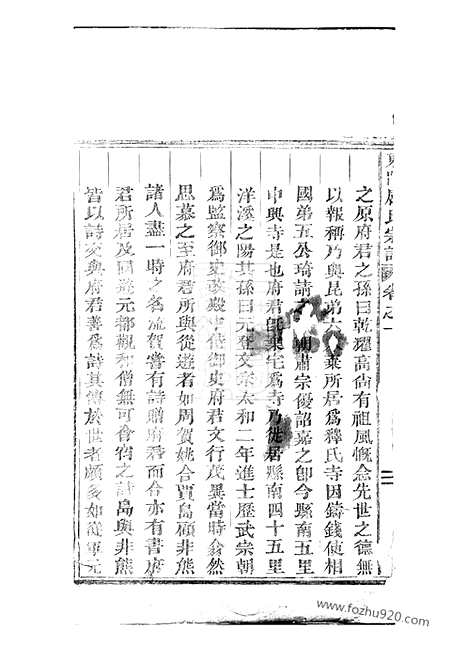 東門厲氏宗譜 卷之一
之原府君之孫曰乾耀高尚有祖風慨念先世之德無
以報稱乃與昆弟六人業所居爲釋氏寺因鑄錢使相
國弟五公琦請 朝肅宗優詔嘉之卽今縣南五里
中興寺是也府君旣棄宅爲寺乃徙居縣南四十五里
洋溪之陽其孫曰元 登文宗太和二年進士歷武宗朝
爲監察御史 殿中侍御史府君文行茂異當時翕然
思慕之至府君所與從遊者如周賀姚合賈島顧非熊
諸人盡一時之名流賀嘗有詩贈府君而合亦有書府
君所居及同遊元都觀和僧無可會宿之詩島與非熊
皆以詩交與府君善爲詩其傳於世者頗多如從軍元
www.fozhu920.com